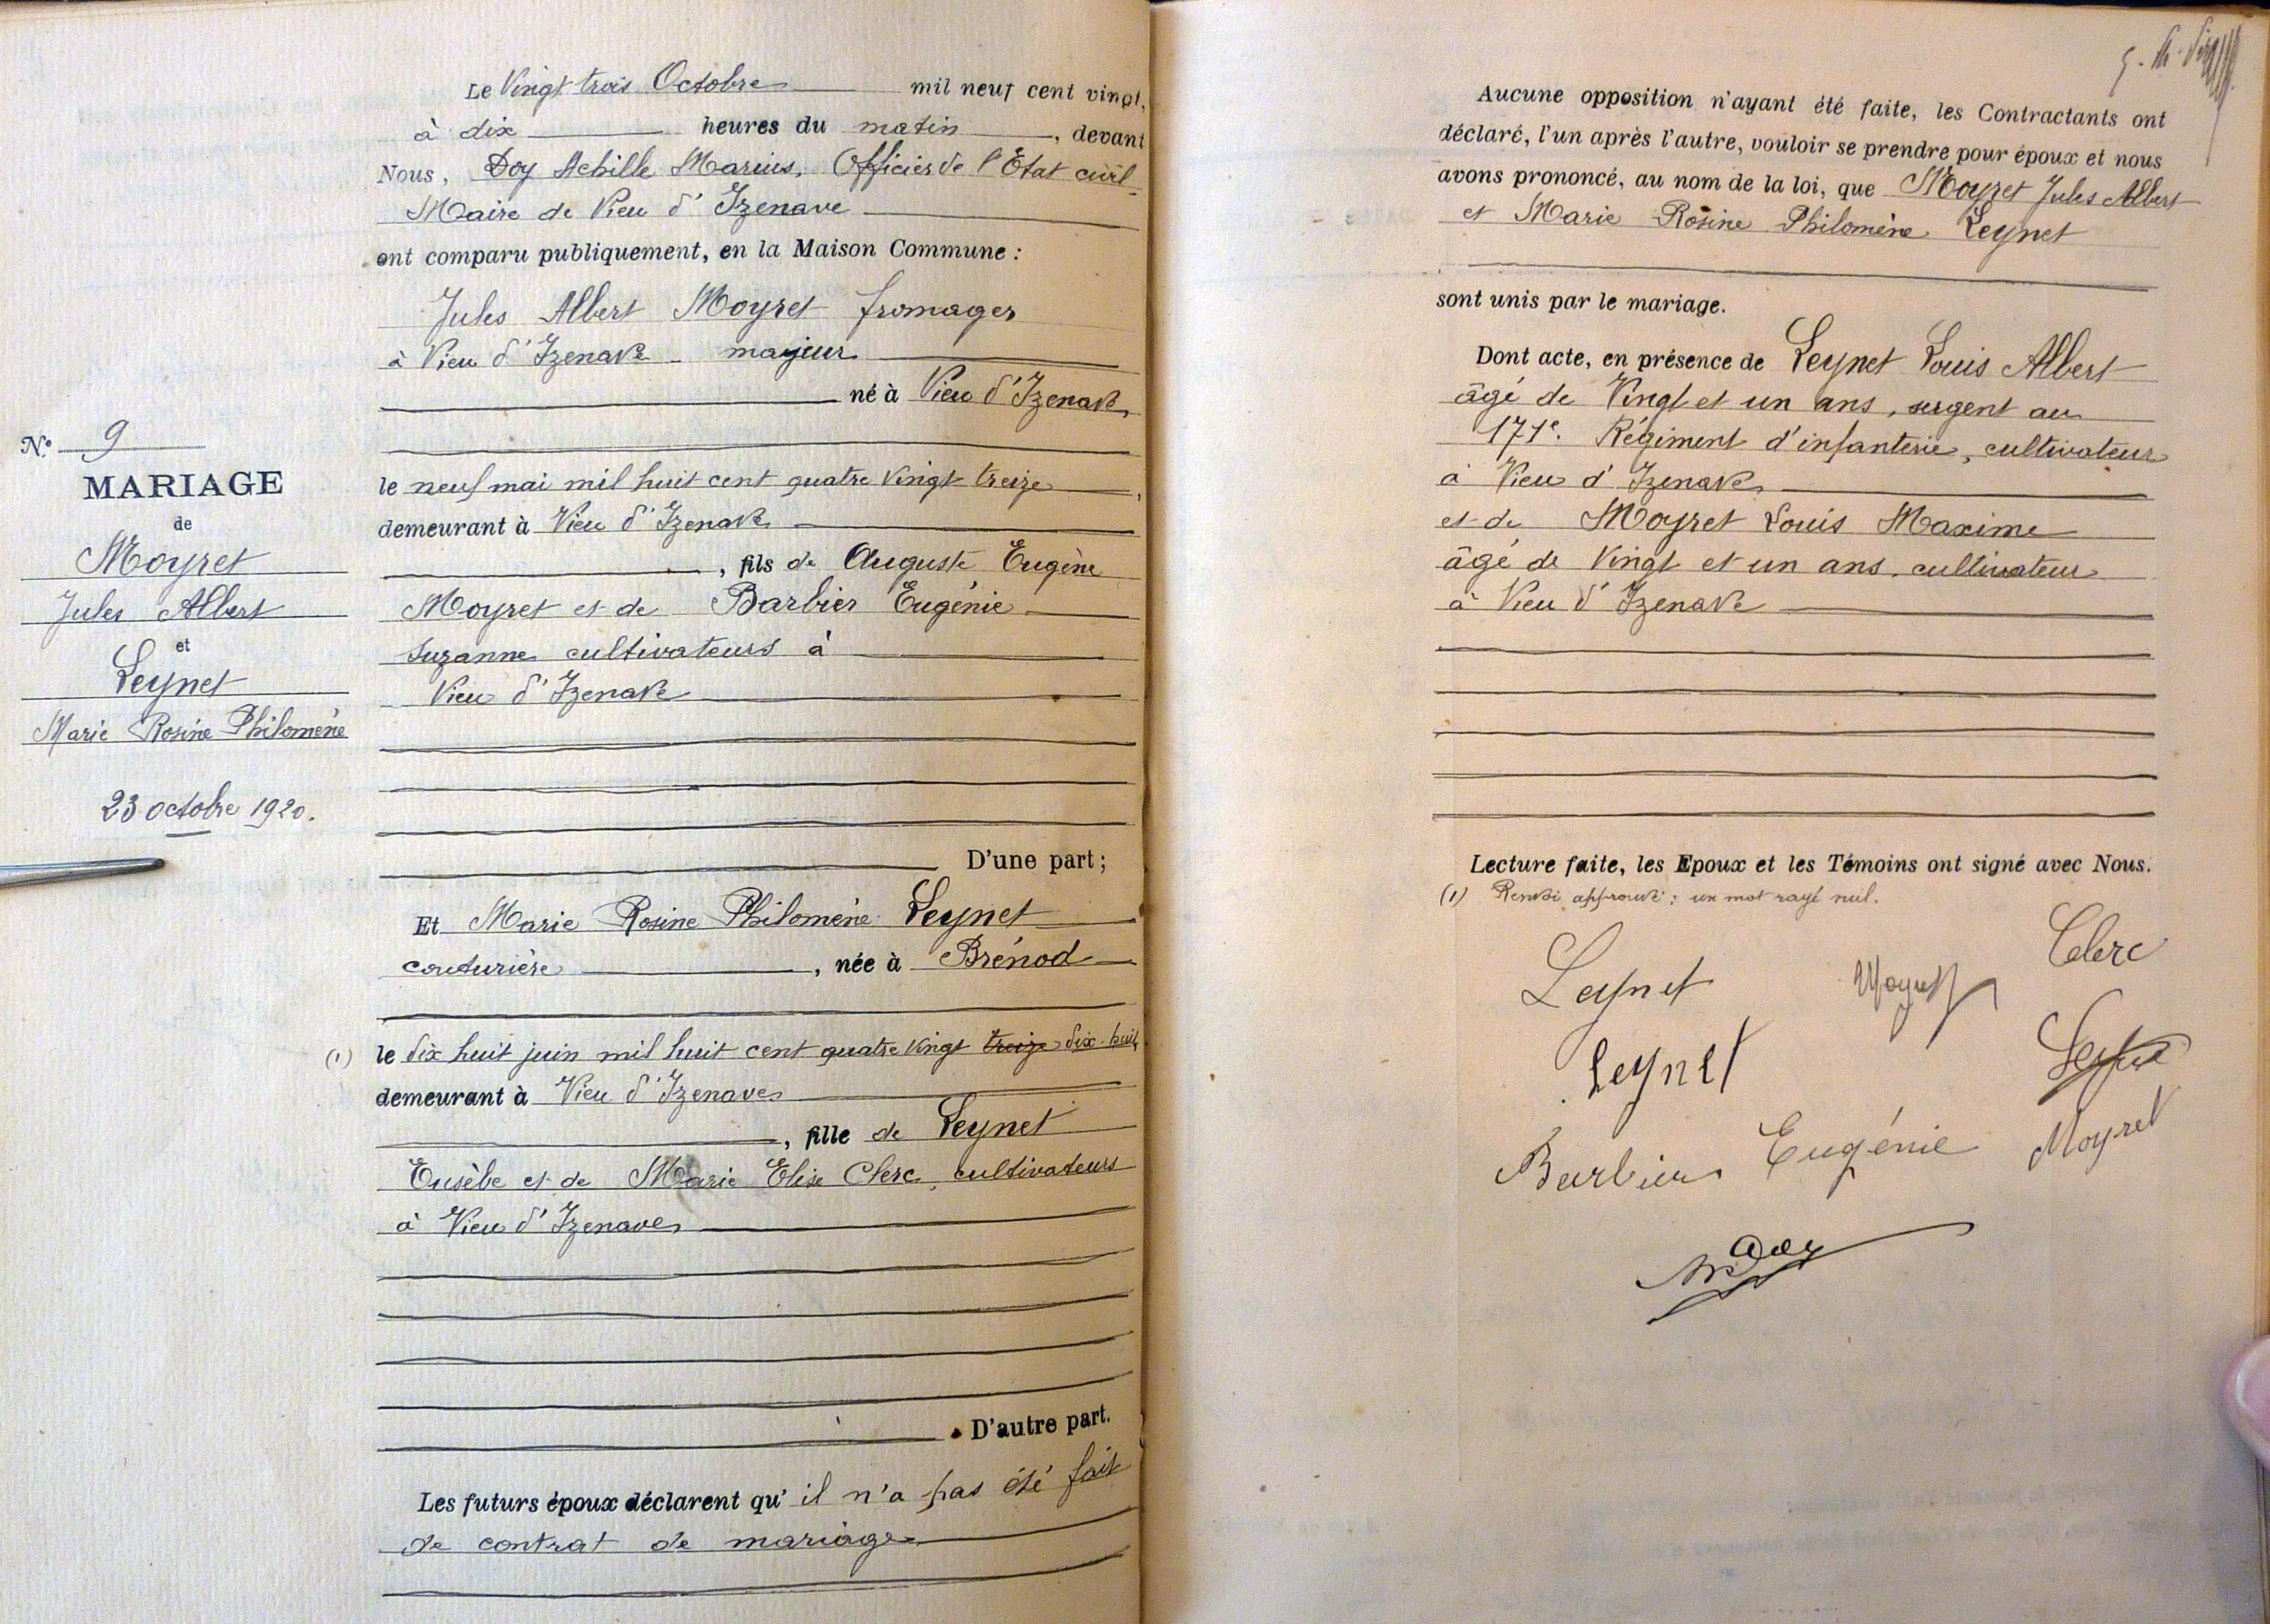 N.° 9
MARIAGE
de
Moyret
Jules Albert
et
Leynet
Marie Rosine Philomène
23 octobre 1920.
Le Vingt trois Octobre mil neuf cent vingt,
à dix heures du matin, devant
Nous, Doy Achille Marius, Officier de l'Etat civil
Maire de Vieu d'Izenave
ont comparu publiquement, en la Maison Commune :
Jules Albert Moyret fromager
à Vieu d'Izenave majeur
né à Vieu d'Izenave,
le neuf mai mil huit cent quatre vingt treize,
demeurant à Vieu d'Izenave
, fils de Auguste Eugène
Moyret et de Barbier Eugénie
Suzanne cultivateurs à
Vieu d'Izenave
D'une part ;
Et Marie Rosine Philomène Leynet
couturière, née à Brénod
(1) le dix huit juin mil huit cent quatre vingt treize dix-huit,
demeurant à Vieu d'Izenave
, fille de Leynet
Eusèbe et de Marie Elise Clerc, cultivateurs
à Vieu d'Izenave
D'autre part.
Les futurs époux déclarent qu'il n'a pas été fait
de contrat de mariage
Aucune opposition n'ayant été faite, les Contractants ont
déclaré, l'un après l'autre, vouloir se prendre pour époux et nous
avons prononcé, au nom de la loi, que Moyret Jules Albert
et Marie Rosine Philomène Leynet
sont unis par le mariage.
Dont acte, en présence de Leynet Louis Albert
âgé de Vingt et un ans, sergent au
171e. Régiment d'infanterie, cultivateur
à Vieu d'Izenave
et de Moyret Louis Maxime
âgé de Vingt et un ans, cultivateur
à Vieu d'Izenave
Lecture faite, les Epoux et les Témoins ont signé avec Nous.
(1) Renvoi approuvé : un mot rayé nul.
Leynet Moyret Clerc
Leynet Leynet
Barbier Eugénie Moyret
Doy